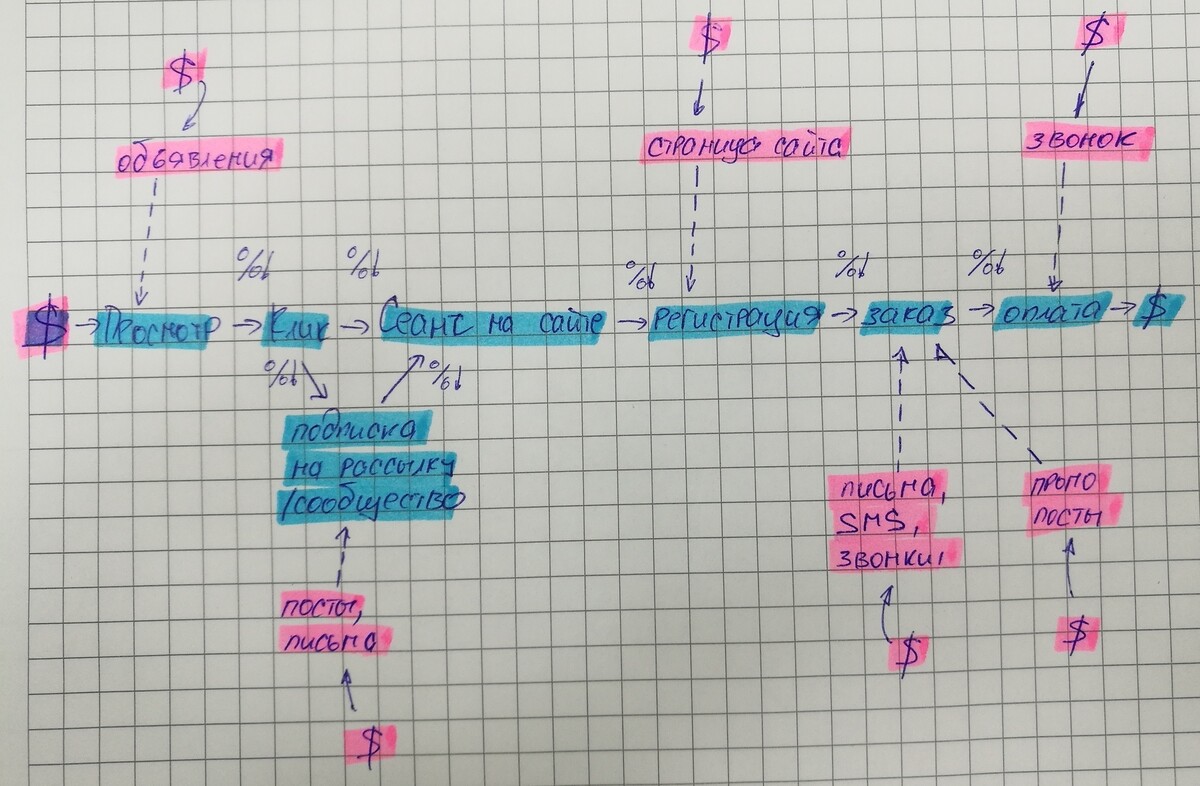 $
$
$
объявления
страница сайта
звонок
%↓
%↓
%↓
%↓
%↓
$ → Просмотр → Клик → Сеанс на сайте → регистрация → заказ → оплата → $
%↓
%↓
подписка
на рассылку
/сообщество
письма,
SMS,
звонки,
промо
посты
посты,
письма
$
$
$